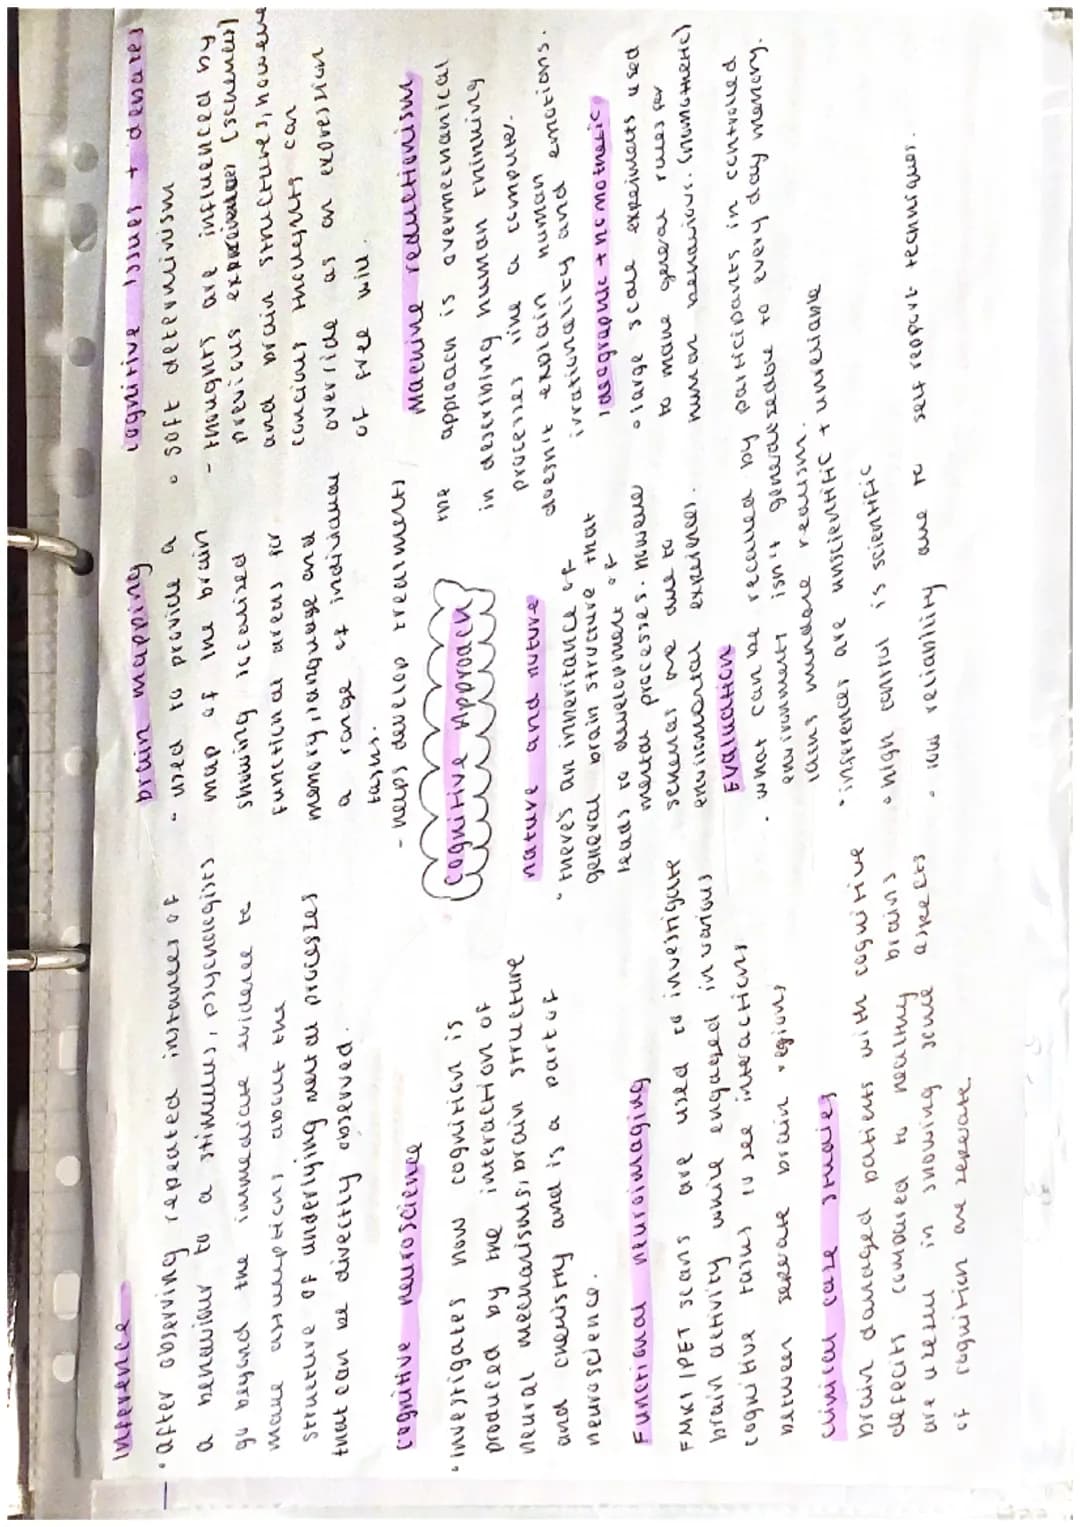 Inference
• After observing repeated instances of
a behaviour to a stimulus, psychologists
go beyond the immediate evidence to
make assumptions about the
structure of underlying mental processes
that can be divectly observed.
Cognitive neuroscience
• Investigates how cognition is
produced by the interaction of
neural mechanisms, brain structure
and chemistry and is a part of
neuroscience.
Functional neuroimaging
FMRI/PET scans are used to investigate
brain activity while engaged in various
cognitive tasks to see interactions
between seperate brain regions
clinical case studies
brain damaged patients with cognitive
deficits compared to healthy brains
are useful in showing some aspects
of cognition are seperate.
brain mapping
• used to provide a
map of the brain
showing localised
functional areas for
memory, language and
a range of individual
tasks.
- helps develop treatments
Cognitive Approach
nature and nuture
• there's an inheritance of
general brain structure that
leads to development of
mental processes. However
schemas are due to
enviromental experiences.
Evaluation
• what can be recalled by participants in controlled
environment isn't generalisable to every day memory.
lacks mundane realism.
• inferences are unscientific + unreliable
• high control is scientific
• low reliability due to self report techniques.
cognitive issues + debates
• soft determinism
- thoughts are influenced by
previous experiences (schemas)
and brain structures, however
concious thoughts can
override as an expression
of free will.
Machine reductionism
the approach is overmechanical
in describing human thinking
processes like a computer.
doesn't explain human
irrationality and emotions.
idiographic + nomothetic
• large scale experiments used
to make general rules for
human behaviour. (nomothetic)